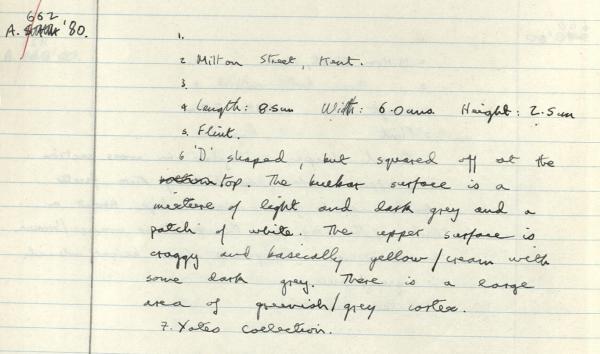 662
A. '80.
1.
2 Milton Street, Kent.
3.
4 Length: 8.5cm Width: 6.0cms Height: 2.5cm
5. Flint.
6 'D' shaped, but squared off at the
bottom top. The bulbar surface is a
mixture of light and dark grey and a
patch of white. The upper surface is
craggy and basically yellow/cream with
some dark grey. There is a large
area of greenish/grey cortex.
7. Yates collection.